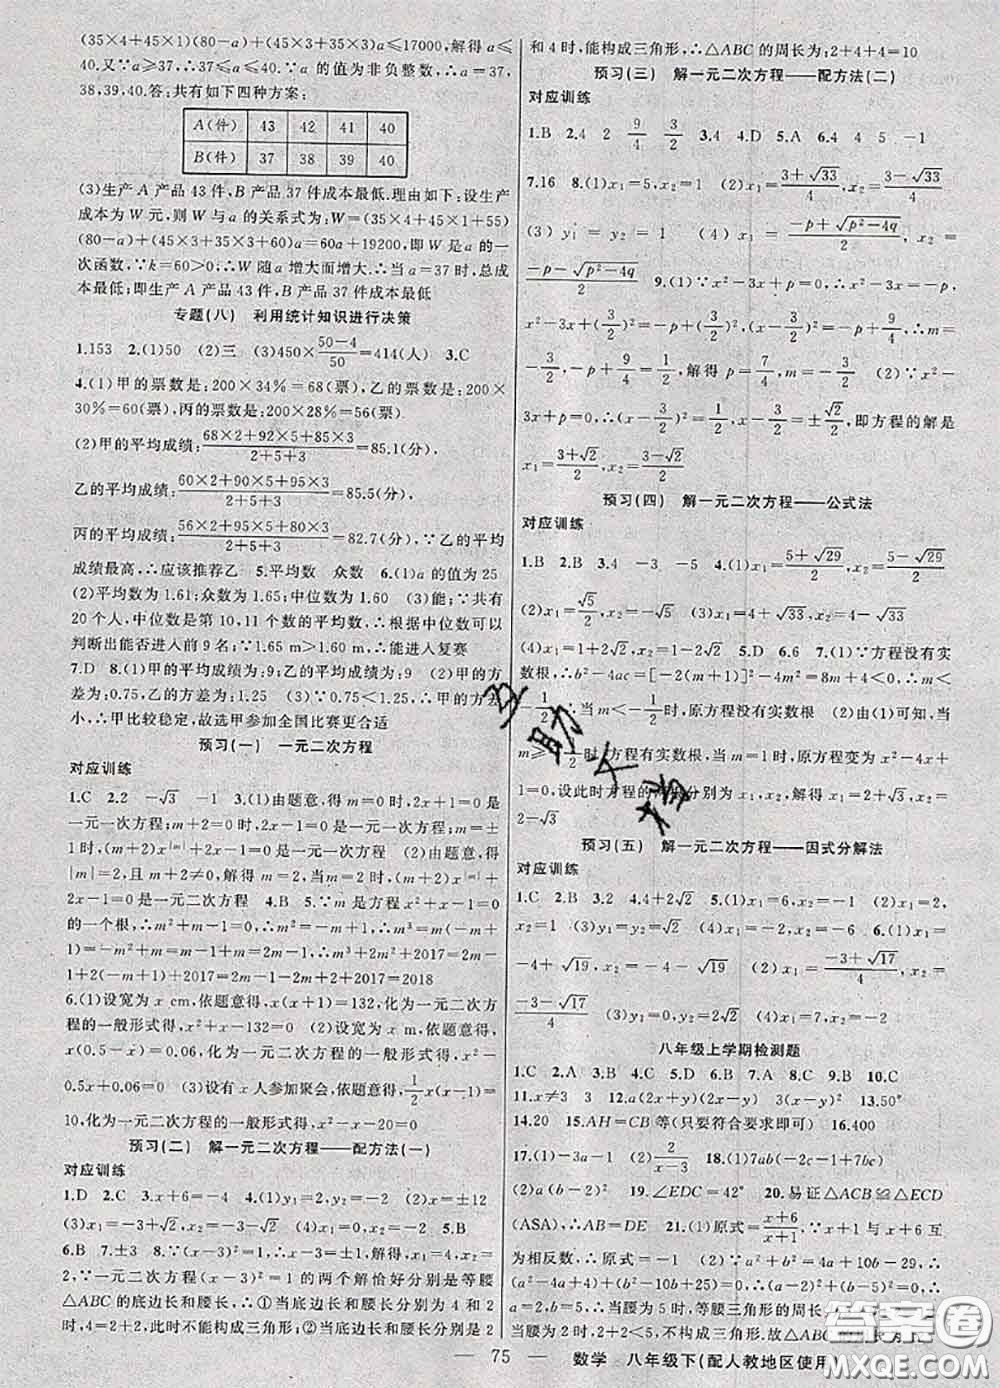 (35×4+45×1)(80-a)+(45×3+35×3)a≤17000,解得a≤
40.又∵a≥37,∴37≤a≤40.∵a的值为非负整数,∴a=37,
38,39,40.答:共有如下四种方案:
A(件) 43 42 41 40
B(件) 37 38 39 40
(3)生产A产品43件,B产品37件成本最低.理由如下:设生产
成本为W元,则W与a的关系式为:W=(35×4+45×1+55)
(80-a)+(45×3+35×3+60)a=60a+19200,即W是a的一
次函数,∵k=60>0,∴W随a增大而增大.∴当a=37时,总成
本最低;即生产A产品43件,B产品37件成本最低
专题(八) 利用统计知识进行决策
1.153 2.(1)50 (2)三 (3)450×(50-4)/50=414(人) 3.C
4.(1)甲的票数是:200×34%=68(票),乙的票数是:200×
30%=60(票),丙的票数是:200×28%=56(票)
(2)甲的平均成绩:(68×2+92×5+85×3)/(2+5+3)=85.1(分)
乙的平均成绩:(60×2+90×5+95×3)/(2+5+3)=85.5(分)
丙的平均成绩:(56×2+95×5+80×3)/(2+5+3)=82.7(分),∵乙的平均
成绩最高,∴应该推荐乙 5.平均数 众数 6.(1)a的值为25
(2)平均数为1.61;众数为1.65;中位数为1.60 (3)能;∵共有
20个人,中位数是第10,11个数的平均数,∴根据中位数可以
判断出能否进入前9名;∵1.65m>1.60m,∴能进入复赛
7.D 8.(1)甲的平均成绩为9;乙的平均成绩为9 (2)甲的方
差为:0.75,乙的方差为:1.25 (3)∵0.75<1.25,∴甲的方差
小,∴甲比较稳定,故选甲参加全国比赛更合适
预习(一) 一元二次方程
对应训练
1.C 2.2 -√3 -1 3.(1)由题意,得m=0时,2x+1=0是
一元一次方程;m+2=0时,2x+1=0是一元一次方程;m=±
1时,(m+2)x^|m|+2x+1=0是一元一次方程 (2)由题意,得
|m|=2,且m+2≠0,解得m=2,∴当m=2时,(m+2)x^|m|+
2x-1=0是一元二次方程 4.B 5.∵m是方程x²+x-1=0
的一个根,∴m²+m-1=0,∴m²=-m+1,∴m³=m(-m+
1)=-m²+m=m-1+m=2m-1,∴m³+2m²+2017=2m-
1+2(-m+1)+2017=2m-1-2m+2+2017=2018
6.(1)设宽为x cm,依题意得,x(x+1)=132,化为一元二次方
程的一般形式得,x²+x-132=0 (2)设宽为x m,依题意得,
x(x+0.5)=0.06,化为一元二次方程的一般形式得,x²+
0.5x+0.06=0 (3)设有x人参加聚会,依题意得,1/2x(x-1)=
10,化为一元二次方程的一般形式得,x²-x-20=0
预习(二) 解一元二次方程——配方法(一)
对应训练
1.D 2.C 3.x+6=-4 4.(1)y₁=2,y₂=-2 (2)x₁=8,x₂=-12
(3)x₁=-3+√3,x₂=-3-√3 (4)x₁=0,x₂=4 5.B
6.B 7.±3 8.∵(x-3)²=1,∴x-3=±1,解得,x₁=4,x₂=
2,∵一元二次方程(x-3)²=1的两个解恰好分别是等腰
△ABC的底边长和腰长,∴①当底边长和腰长分别为4和2
时,4=2+2,此时不能构成三角形;②当底边长和腰长分别是2
和4时,能构成三角形,∴△ABC的周长为:2+4+4=10
预习(三) 解一元二次方程——配方法(二)
对应训练
1.B 2.4 2 9/4 3/2 3.4 4.D 5.A 6.4 4 5 -1
7.16 8.(1)x₁=5,x₂=1 (2)x₁=(3+√33)/4,x₂=(3-√33)/4
(3)y₁=y₂=1 (4)x₁=(-p+√(p²-4q))/2,x₂=
(-p-√(p²-4q))/2 9.(1)∵x²-3x+p=0,∴x²-3x=-p,
x²-3x+9/4=-p+9/4,(x-3/2)²=-p+9/4,∴m=
-3/2,-p+9/4=1/2,解得p=7/4,m=-3/2 (2)∵x²-
3x+p=0,∴(x-3/2)²=1/2,x-3/2=±√2/2,即方程的解是
x₁=(3+√2)/2,x₂=(3-√2)/2
预习(四) 解一元二次方程——公式法
对应训练
1.B 2.B 3.4 -3 -5 4.(1)x₁=(5+√29)/2,x₂=(5-√29)/2
(2)x₁=√5/2,x₂=-√5 (3)x₁=4+√33,x₂=4-√33
(4)x₁=1+2√2,x₂=1-2√2 5.D 6.6 7.(1)∵方程没有实
数根,∴b²-4ac=[-2(m+1)]²-4m²=8m+4<0,∴m<
-1/2,∴当m<-1/2时,原方程没有实数根 (2)由(1)可知,当
m≥-1/2时,方程有实数根,当m=1时,原方程变为x²-4x+
1=0,设此时方程的两根分别为x₁,x₂,解得x₁=2+√3,x₂=
2-√3
预习(五) 解一元二次方程——因式分解法
对应训练
1.C 2.A 3.2 4.4+2√2 5.(1)x₁=0,x₂=-1 (2)x₁=2,
x₂=1 (3)y₁=y₂=√2 (4)x₁=-2,x₂=-6 6.(1)x₁=
-4+√19,x₂=-4-√19 (2)x₁=(-3+√17)/4,x₂=
(-3-√17)/4 (3)y₁=0,y₂=2√2 (4)x₁=7,x₂=-2
八年级上学期检测题
1.C 2.A 3.B 4.C 5.D 6.C 7.B 8.C 9.B 10.C
11.x≠3 3 12.a(2x+y)(2x-y) 13.50°
14.20 15.AH=CB等(只要符合要求即可) 16.400
17.(1)-3a-1 (2)2/(x-3) 18.(1)7ab(-2c-1+7bc)
(2)a(b-2)² 19.∠EDC=42° 20.易证△ACB≌△ECD
(ASA),∴AB=DE 21.(1)原式=(x+6)/(x+6)=1,∵x+1与x+6互
为相反数,∴原式=-1 (2)∵a²+b²=4a+10b-29,∴
(a²-4a+4)+(b²-10b+25)=0,∴(a-2)²+(b-5)²=0,∴
a=2,b=5,∴当腰为5时,等腰三角形的周长为5+5+2=12,
当腰为2时,2+2<5,
75
数学 八年级下(配人教地区使用)
答案圈
MXQE.COM